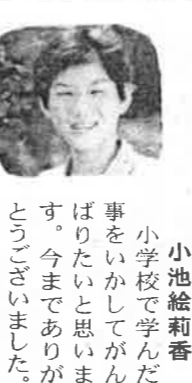 小池絵莉香
小学校で学んだ
事をいかしてがん
ばりたいと思いま
す。今までありが
とうございました。